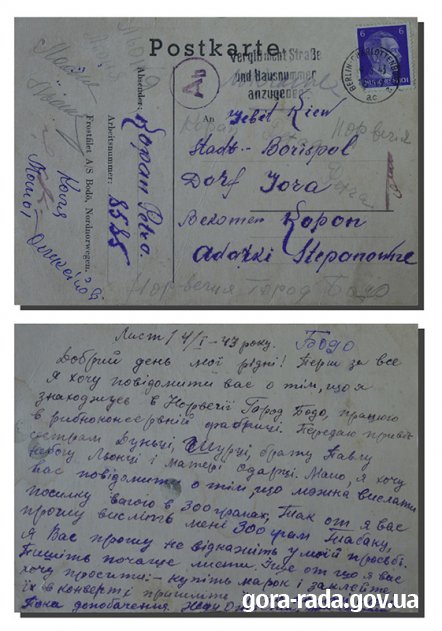 Postkarte
Vergißmeinnicht Straße
und Hausnummer
anzugeben
BERLIN-CHARLOTTENBURG
6 6
Ab
An
Absender:
Kopan Petro.
Arbeitsnummer: 8585
Frostfilet A/S Bodö, Nordnorwegen.
Gebit Kiew
Stadt - Borispol
Dorf Gora
Bekomen Kopon
Adarki Stepanowne
Норвегия
Норвегия Город Бодо
Лист / 4/I - 43 року. Бодо
Добрий день мої рідні! Перш за все
я хочу повідомити вас о тім, що я
знаходжусь в Норвегії Город Бодо, працюю
в рибноконсервній фабриці. Передаю привіт
сестрам Дуньці, Шурці, брату Павлу
Льонці і матері Одарці. Мамо, я хочу
вас повідомить о тім, що можна вислати
посилку вагою в 300 грамах, Так от я вас
прошу висліть мені 300 грам Табаку,
я Вас прошу не відкажіть у моїй просьбі.
Пишіть почаще листи. Іще от що я вас
хочу просити:- купіть марок і заклейте
їх в конверті пришліть
Пока до побачення
gora-rada.gov.ua